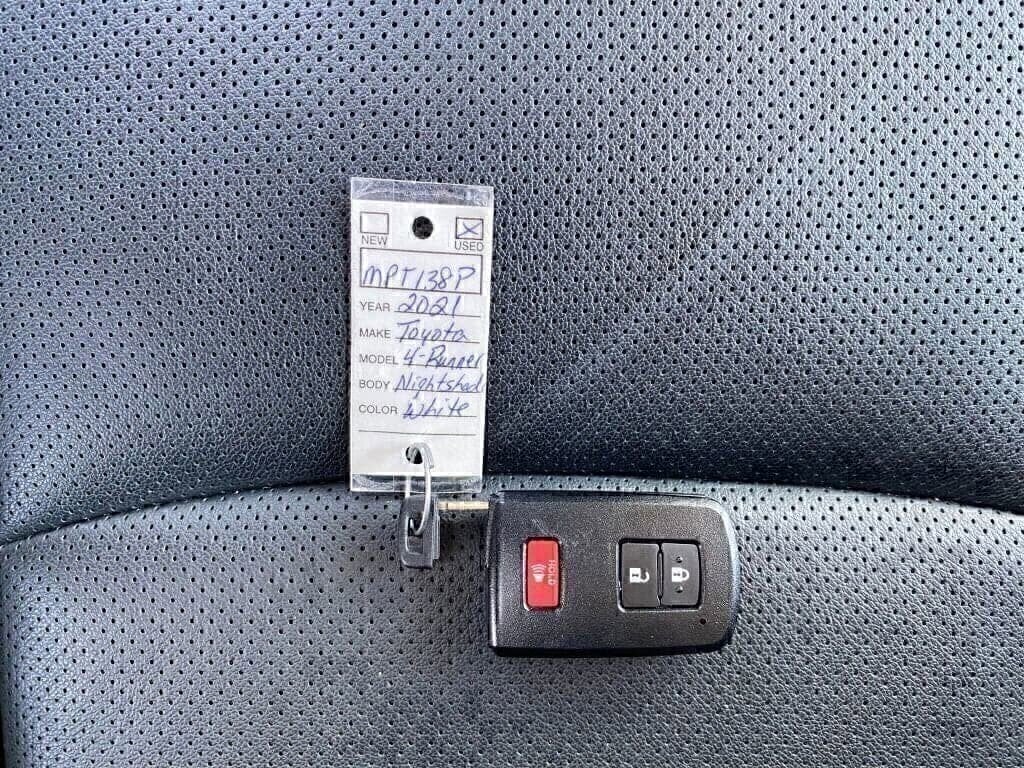 NEW USED
MPT138P
YEAR 2021
MAKE Toyota
MODEL 4-Runner
BODY Nightshad
COLOR White
HOLD